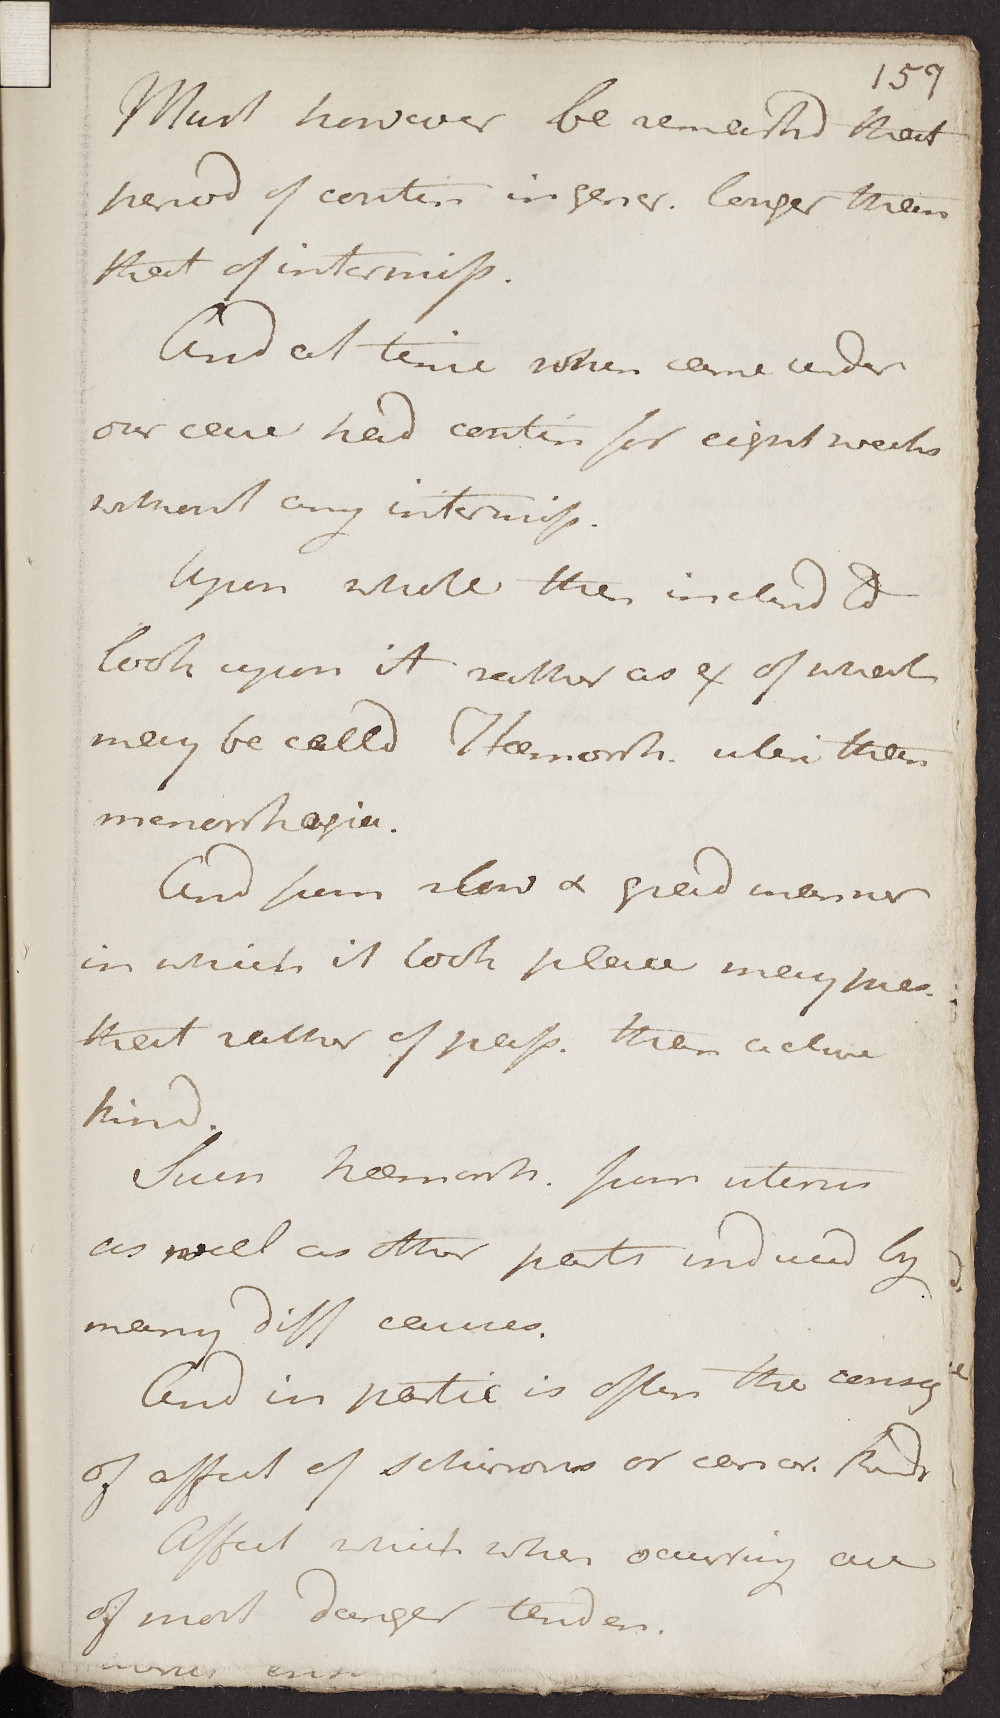 159
Must however be remarkd that
period of contin in gener. longer than
that of intermiss.
And at time when came under
our care had contin for eight weeks
without any intermiss.
Upon whole then inclend to
look upon it rather as ex of what
may be calld Hæmorrh. uteri than
menorrhagia.
And from slow & grad manner
in which it took place may pres.
that rather of pass. than active
kind.
Such hæmorrh. from uterus
as well as other parts induced by
many diff causes.
And in partic is often the conseq
of affect of schirrous or cancr. kind
Affect which when occurring are
of most danger tenden.